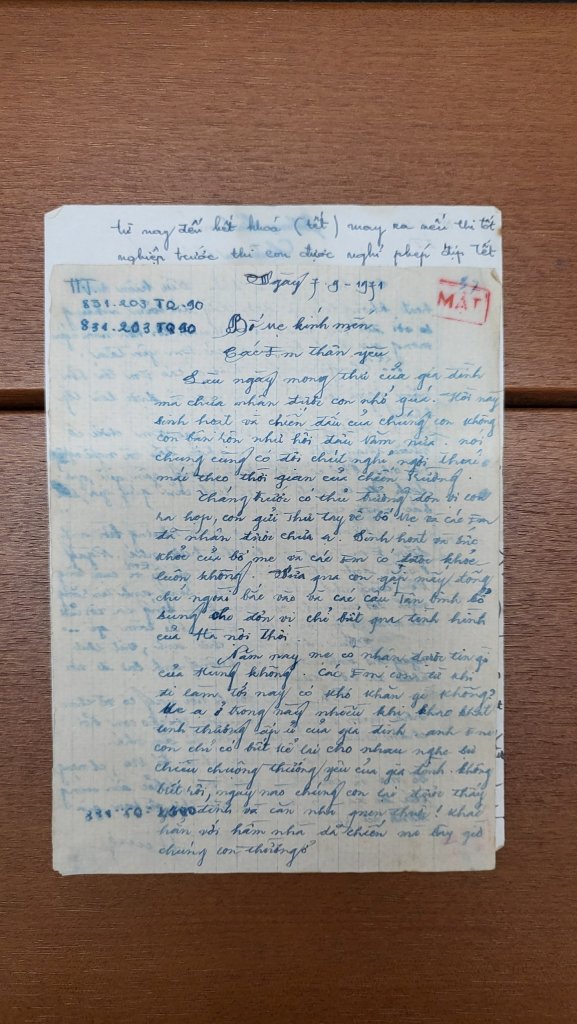 từ nay đến hết khoá (tết) may ra nếu thi tốt
nghiệp trước thì con được nghỉ phép dịp Tết
HT.
831.203 TQ.90
831.203 TQ 90
Ngày 7-9-1971
MẬT
Bố Mẹ kính mến
Các Em thân yêu
Lâu ngày mong thư của gia đình
mà chưa nhận được con nhớ quá. Hồi này
sinh hoạt và chiến đấu của chúng con không
còn bận rộn như hồi đầu năm nữa. nói
chung cũng có đôi chút nghỉ ngơi thoải
mái theo thời gian của chiến trường.
Tháng trước có thủ trưởng đơn vị con
ra họp, con gửi thư tay về bố Mẹ và các Em
đã nhận được chưa ạ. Sinh hoạt và sức
khỏe của bố mẹ và các Em có được khỏe
luôn không. Vừa qua con gặp mấy đồng
chí ngoài bắc vào và các cậu Tân binh bổ
sung cho đơn vị chỉ biết qua tình hình
của Hà nội thôi.
Năm nay mẹ có nhận được tin gì
của Hùng không. Các Em con từ khi
đi làm tới nay có khó khăn gì không?
Mẹ ạ ở trong này nhiều khi khao khát
tình thương ấp ủ của gia đình anh Em
con chỉ có biết kể lại cho nhau nghe sự
chiều chuộng thương yêu của gia đình không
biết rồi, ngày nào chúng con lại được thấy
331.20.1390 đình và căn nhà quen thuộc! Khác
hẳn với hầm nhà dã chiến mà bây giờ
chúng con thường ở